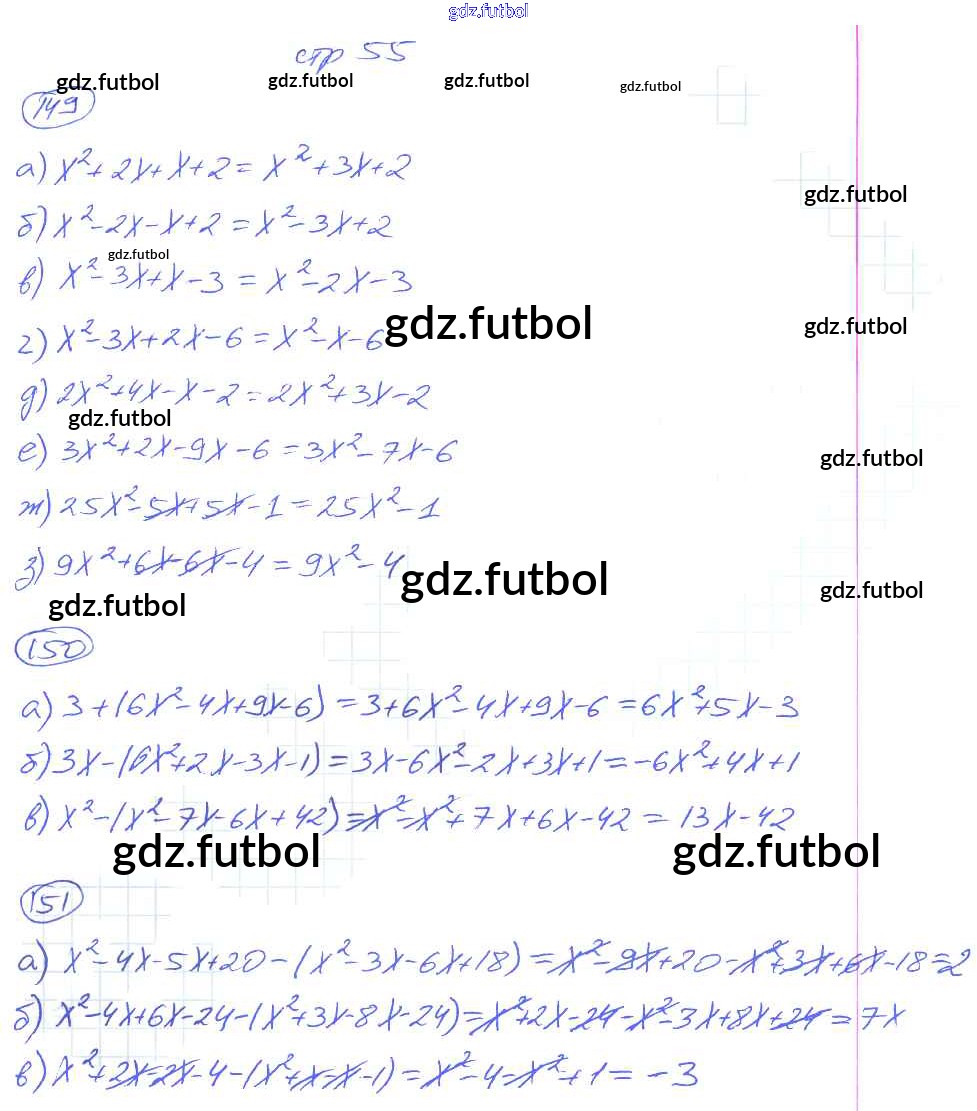 gdz.futbol
стр 55
gdz.futbol gdz.futbol gdz.futbol gdz.futbol
149
а) x²+2x+x+2=x²+3x+2
gdz.futbol
б) x²-2x-x+2=x²-3x+2
gdz.futbol
в) x²-3x+x-3=x²-2x-3
gdz.futbol gdz.futbol
г) x²-3x+2x-6=x²-x-6
д) 2x²+4x-x-2=2x²+3x-2
gdz.futbol
е) 3x²+2x-9x-6=3x²-7x-6
gdz.futbol
ж) 25x²-5x+5x-1=25x²-1
з) 9x²+6x-6x-4=9x²-4
gdz.futbol gdz.futbol
gdz.futbol
150
а) 3+(6x²-4x+9x-6)=3+6x²-4x+9x-6=6x²+5x-3
б) 3x-(6x²+2x-3x-1)=3x-6x²-2x+3x+1=-6x²+4x+1
в) x²-(x²-7x-6x+42)=x²-x²+7x+6x-42=13x-42
gdz.futbol gdz.futbol
151
а) x²-4x-5x+20-(x²-3x-6x+18)=x²-9x+20-x²+3x+6x-18=2
б) x²-4x+6x-24-(x²+3x-8x-24)=x²+2x-24-x²-3x+8x+24=7x
в) x²+2x-2x-4-(x²+x-x-1)=x²-4-x²+1=-3